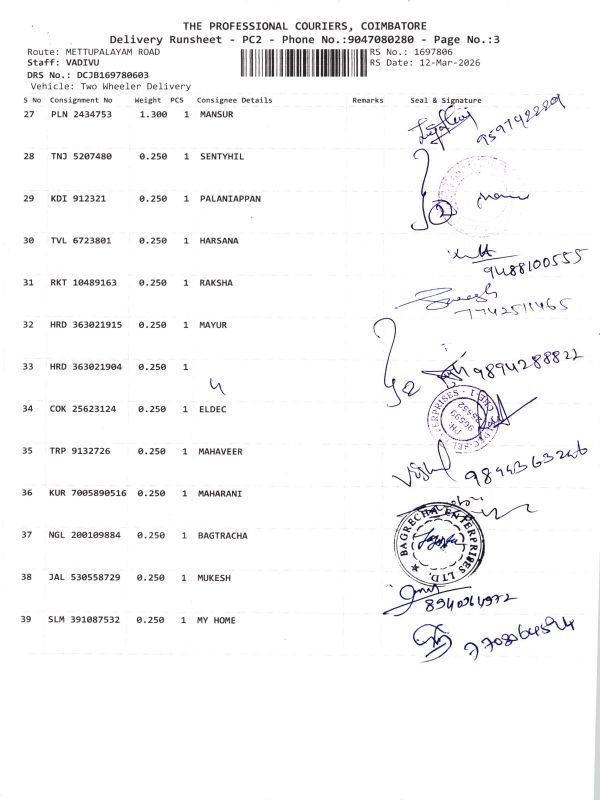 THE PROFESSIONAL COURIERS, COIMBATORE
Delivery Runsheet - PC2 - Phone No.:9047080280 - Page No.:3
Route: METTUPALAYAM ROAD RS No.: 1697806
Staff: VADIVU RS Date: 12-Mar-2026
DRS No.: DCJB169780603
Vehicle: Two Wheeler Delivery
S No Consignment No Weight PCS Consignee Details Remarks Seal & Signature
27 PLN 2434753 1.300 1 MANSUR
28 TNJ 5207480 0.250 1 SENTYHIL
29 KDI 912321 0.250 1 PALANIAPPAN
2
30 TVL 6723801 0.250 1 HARSANA
9488100555
31 RKT 10489163 0.250 1 RAKSHA
7742511465
32 HRD 363021915 0.250 1 MAYUR
33 HRD 363021904 0.250 1
2 9894288822
34 COK 25623124 0.250 1 ELDEC
35 TRP 9132726 0.250 1 MAHAVEER
36 KUR 7005890516 0.250 1 MAHARANI
37 NGL 200109884 0.250 1 BAGTRACHA
BAGRECHA ENTERPRISES LTD.
38 JAL 530558729 0.250 1 MUKESH
39 SLM 391087532 0.250 1 MY HOME